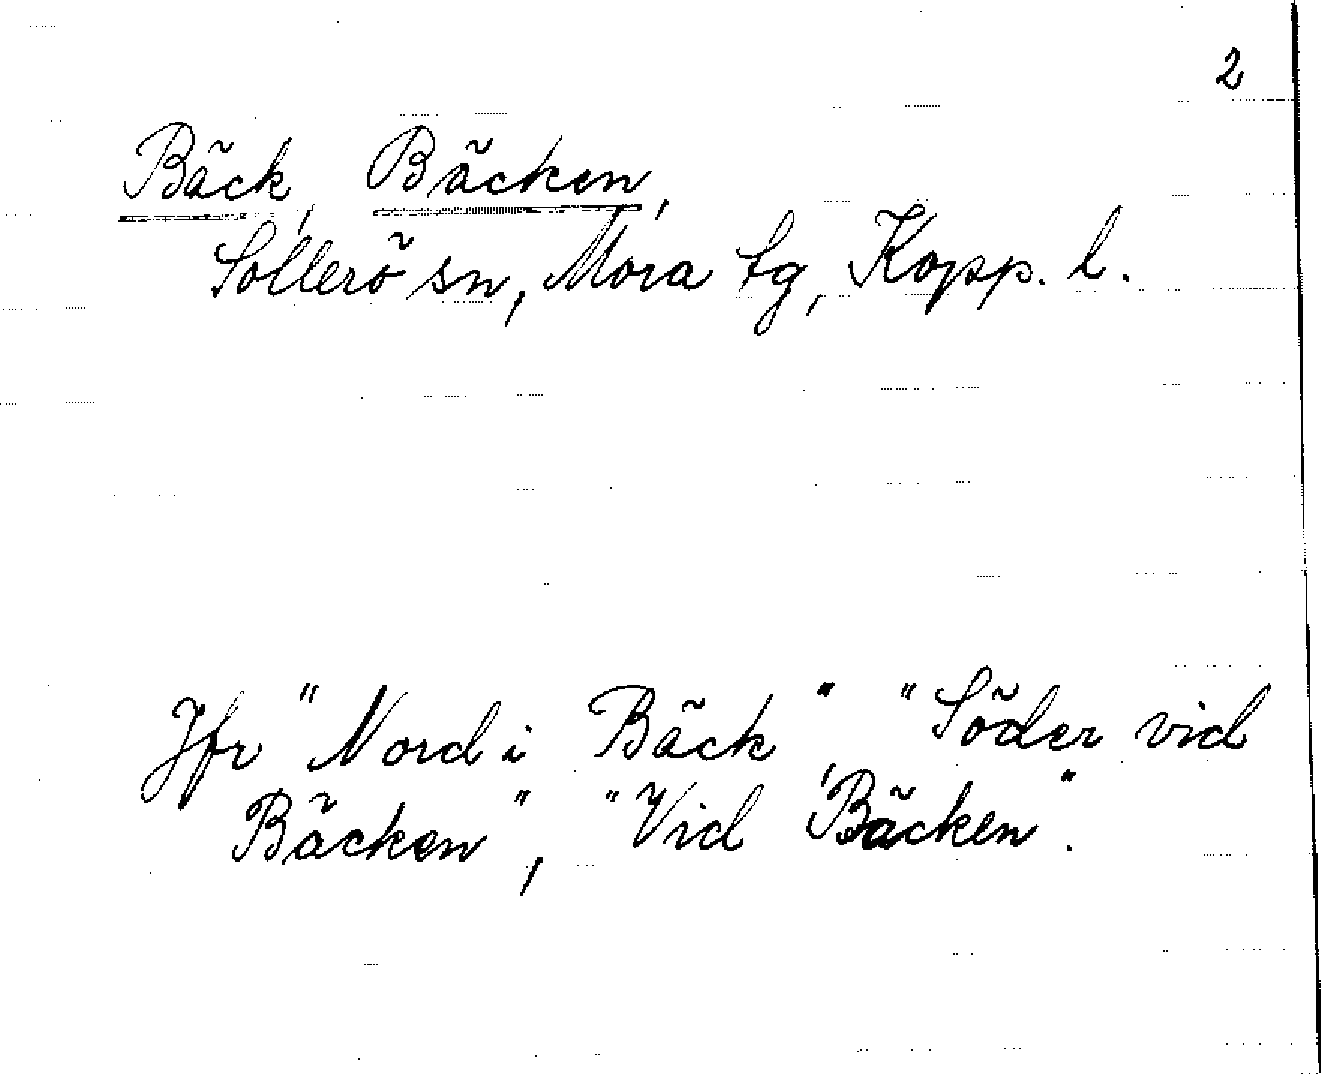 2
Bäck, Bäcken,
Sollerö sn, Mora tg, Kopp. l.
Jfr "Nord i Bäck" "Söder vid
Bäcken", "Vid Bäcken".